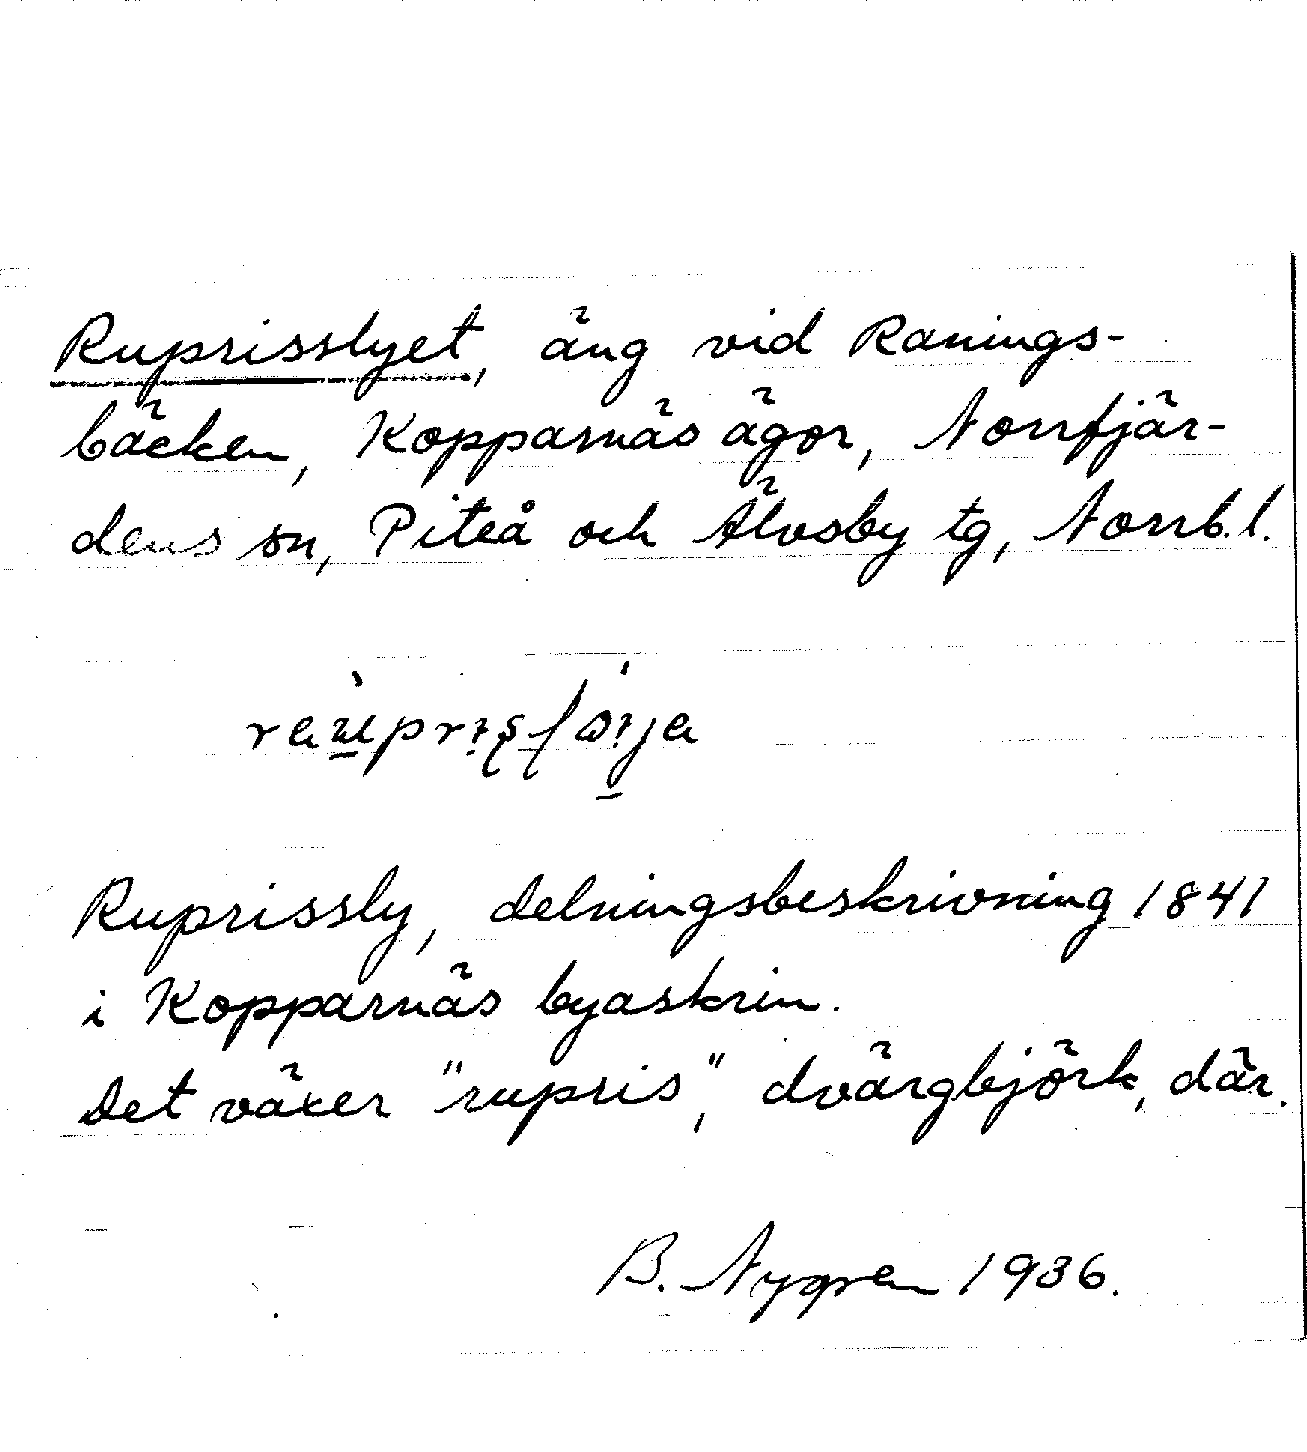 Ruprisslyet, äng vid Ranings-
bäcken, Kopparnäs ägor, Norrfjär-
dens sn, Piteå och Älvsby tg, Norrb. l.
Ruprissly, delningsbeskrivning 1841
i Kopparnäs byaskrin.
Det växer "rupris", dvärgbjörk, där.
B. Nygren 1936.